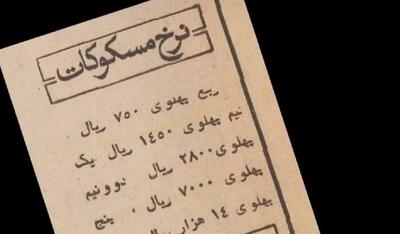 نرخ مسکوکات
ربع پهلوی ۷۵۰ ریال
نیم پهلوی ۱۴۵۰ ریال یک
پهلوی ۲۸۰۰ ریال دوونیم
پهلوی ۷۰۰۰ ریال . پنج
پهلوی ۱۴ هزار ریال